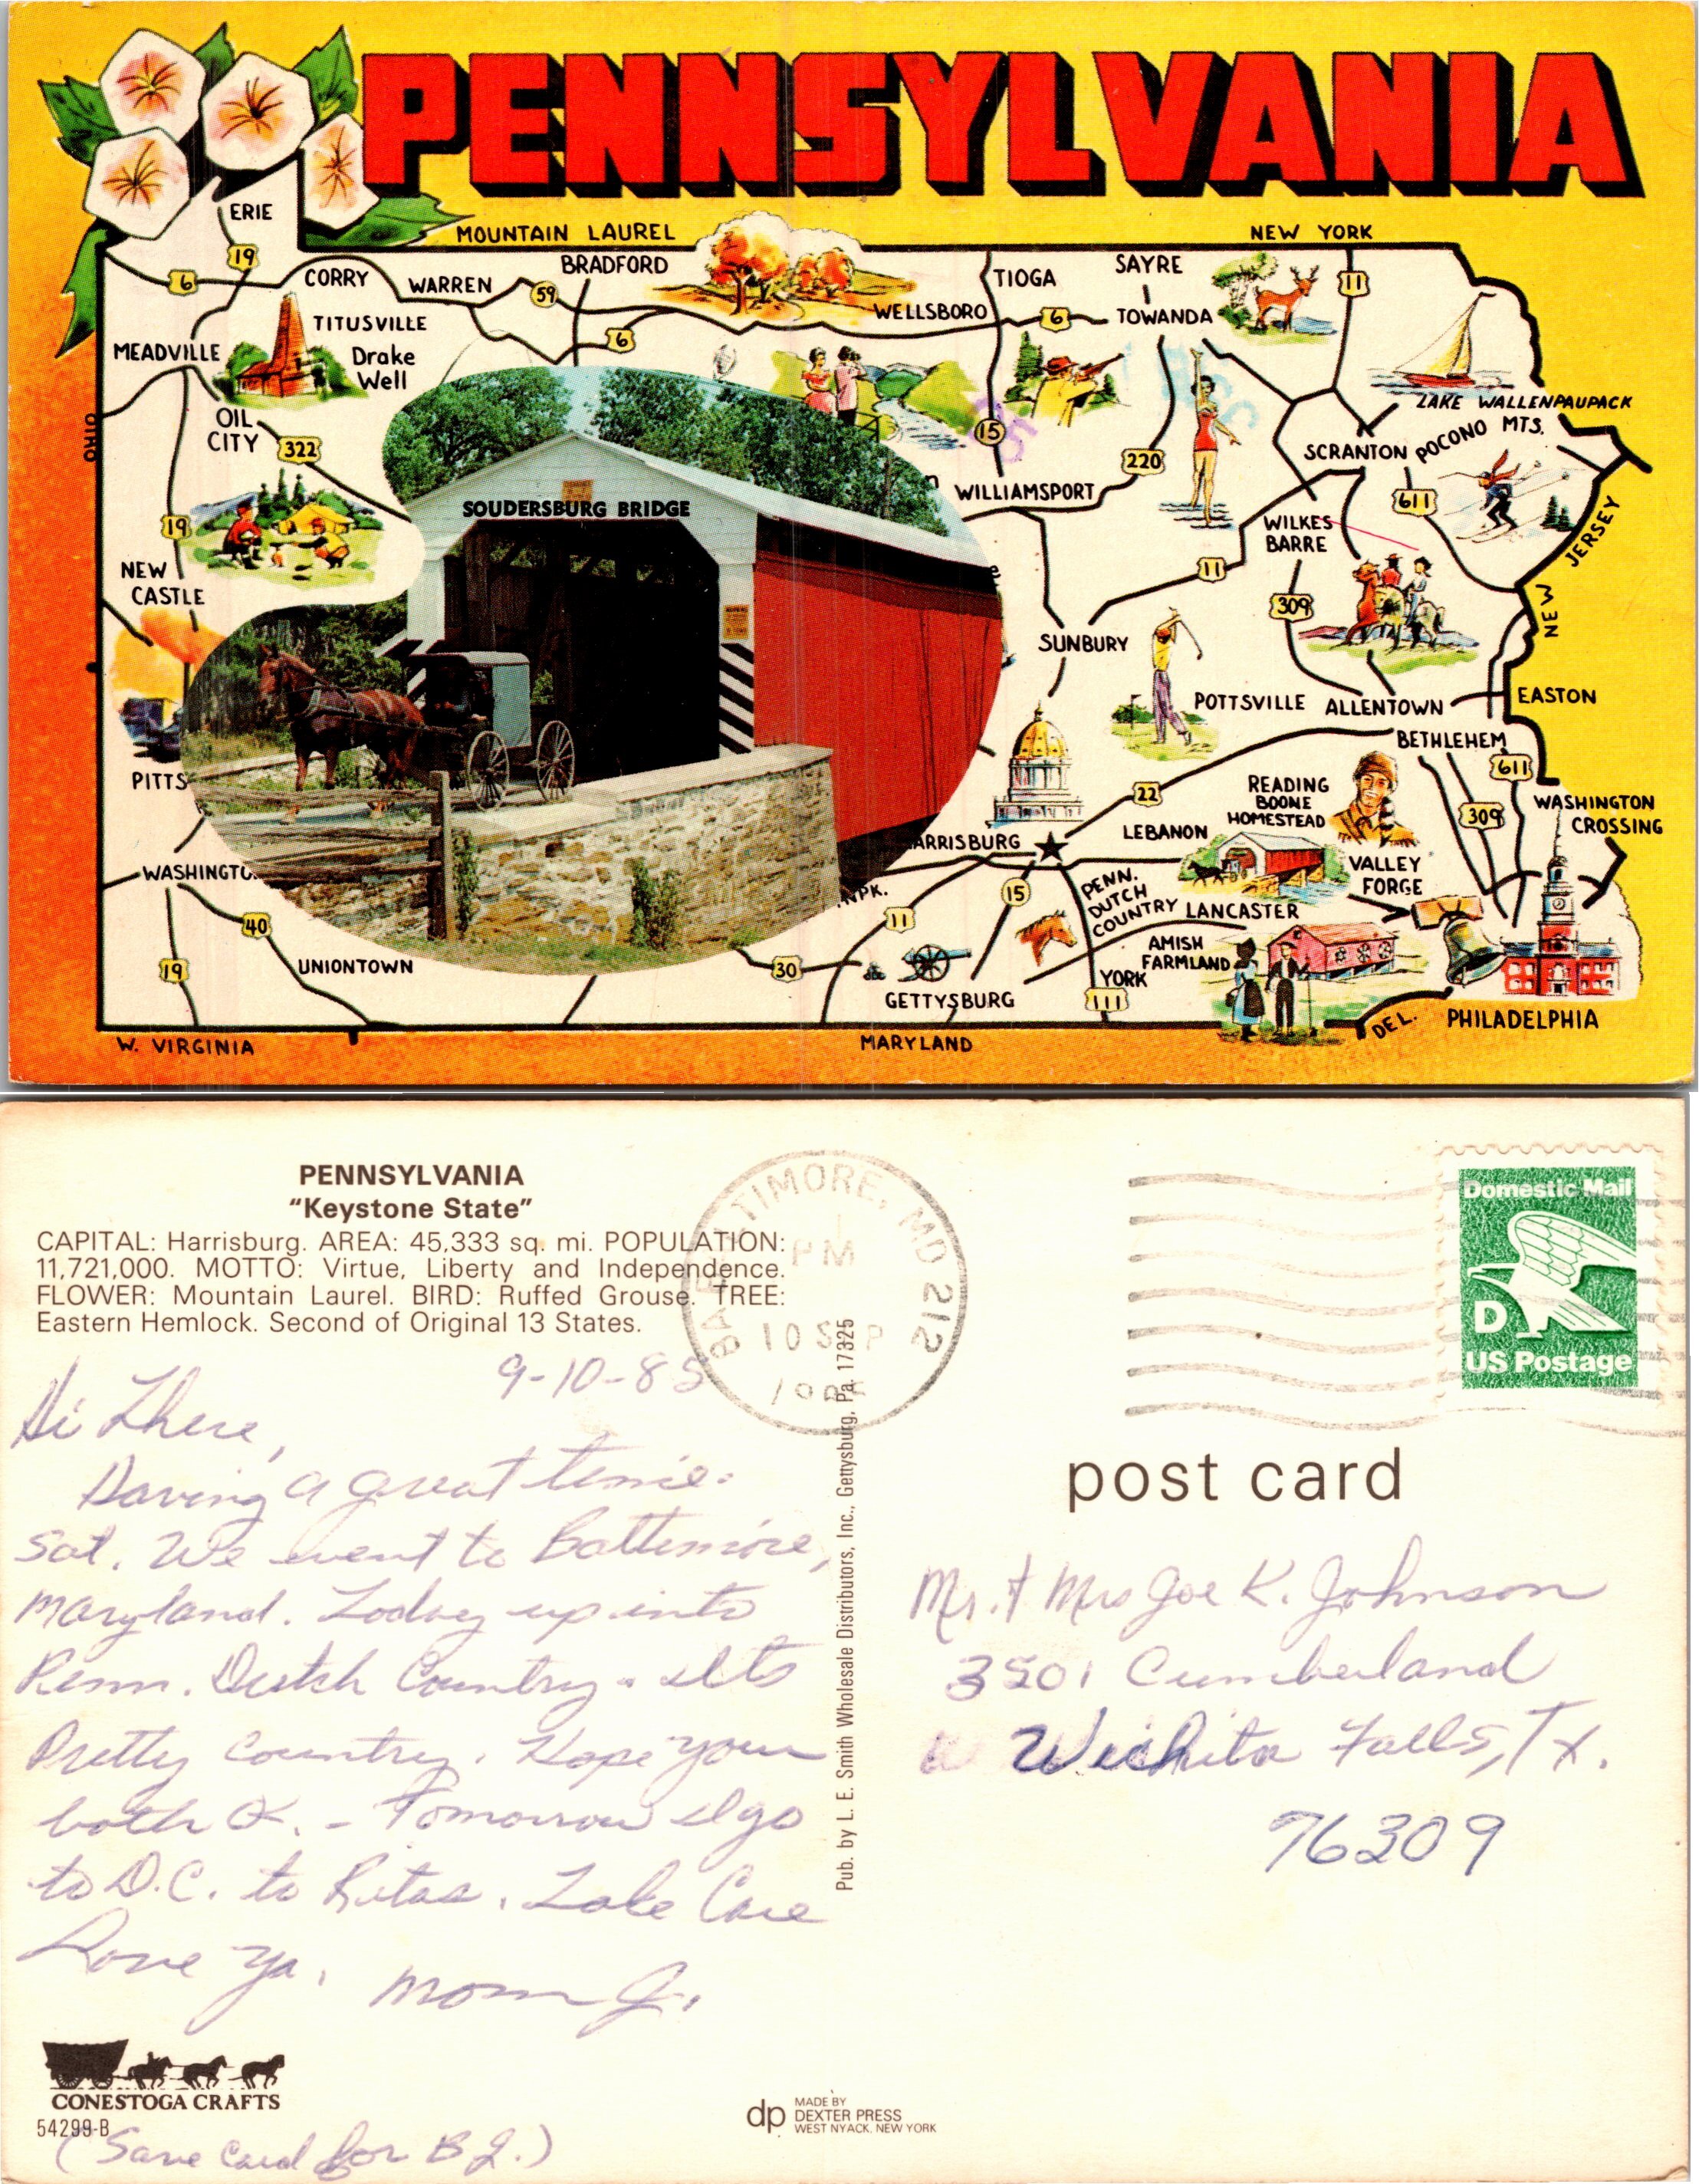 PENNSYLVANIA
ERIE
MOUNTAIN LAUREL
NEW YORK
19
6
CORRY
WARREN
59
BRADFORD
WELLSBORO
TIOGA
SAYRE
11
6
6
TOWANDA
MEADVILLE
TITUSVILLE
Drake
Well
OHIO
OIL
CITY
322
15
220
LAKE WALLENPAUPACK
SCRANTON
POCONO MTS.
611
19
SOUDERSBURG BRIDGE
WILLIAMSPORT
WILKES
BARRE
NEW JERSEY
NEW
CASTLE
11
309
SUNBURY
POTTSVILLE
ALLENTOWN
EASTON
BETHLEHEM
611
PITTS
22
READING
BOONE
HOMESTEAD
309
WASHINGTON
CROSSING
ARRISBURG
LEBANON
VALLEY
FORGE
WASHINGTO
NPK.
15
11
PENN.
DUTCH
COUNTRY
LANCASTER
40
19
UNIONTOWN
30
GETTYSBURG
AMISH
FARMLAND
YORK
111
W. VIRGINIA
MARYLAND
DEL.
PHILADELPHIA
PENNSYLVANIA
“Keystone State”
CAPITAL: Harrisburg. AREA: 45,333 sq. mi. POPULATION:
11,721,000. MOTTO: Virtue, Liberty and Independence.
FLOWER: Mountain Laurel. BIRD: Ruffed Grouse. TREE:
Eastern Hemlock. Second of Original 13 States.
BALTIMORE, MD 212
PM
10 SEP
Domestic Mail
D
US Postage
9-10-85
Hi There,
Having a great time.
Sat. We went to Baltimore,
Maryland. Today up into
Penn. Dutch Country. Its
Pretty Country. Hope your
both OK. - Tomorrow I go
to D.C. to Ritas. Take Care
Love Ya, Mom J.
CONESTOGA CRAFTS
54299-B
(Save Card for B J.)
Pub. by L. E. Smith Wholesale Distributors, Inc., Gettysburg, Pa. 17325
dp MADE BY
DEXTER PRESS
WEST NYACK, NEW YORK
post card
Mr. & Mrs Joe K. Johnson
3501 Cumberland
Wichita Falls, Tx.
76309